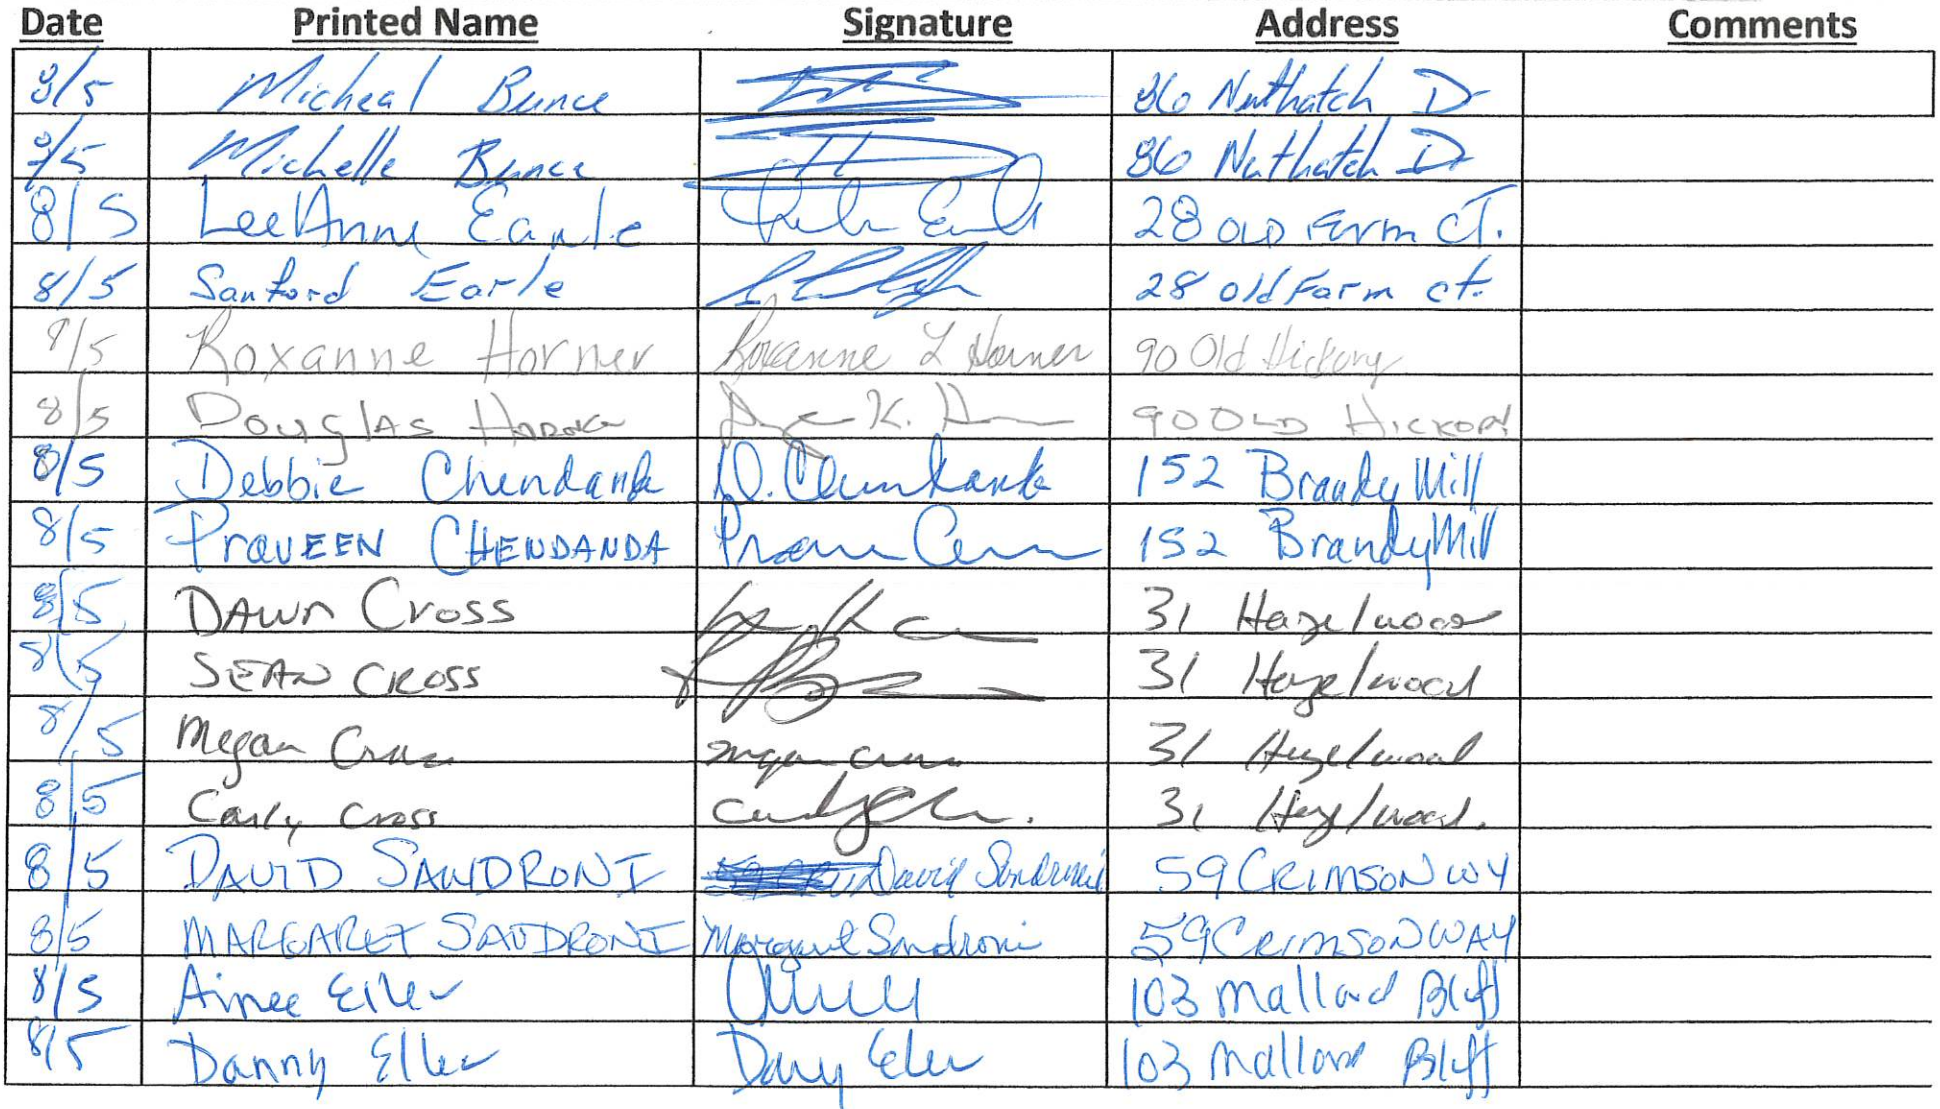 Date Printed Name Signature Address Comments
8/5 Micheal Bunce 86 Nuthatch Dr
8/5 Michelle Bunce 86 Nuthatch Dr
8/5 LeeAnne Earle 28 OLD Farm CT.
8/5 Sanford Earle 28 old Farm ct.
8/5 Roxanne Horner Roxanne L Horner 90 Old Hickory
8/5 Douglas Horner K. 90 OLD Hickory
8/5 Debbie Chendanda D. Chendanda 152 Brandy Mill
8/5 PRAVEEN CHENDANDA 152 Brandy Mill
8/5 DAWN Cross 31 Hazelwood
8/5 SEAN CROSS 31 Hazelwood
8/5 Megan Cross megan cross 31 Hazelwood
8/5 Carly Cross 31 Hazelwood.
8/5 DAVID SANDRONI David Sandroni 59 CRIMSON WY
8/5 MARGARET SANDRONI Margaret Sandroni 59 CRIMSON WAY
8/5 Aimee Eller 103 Mallard Bluff
8/5 Danny Eller Danny Eller 103 Mallard Bluff